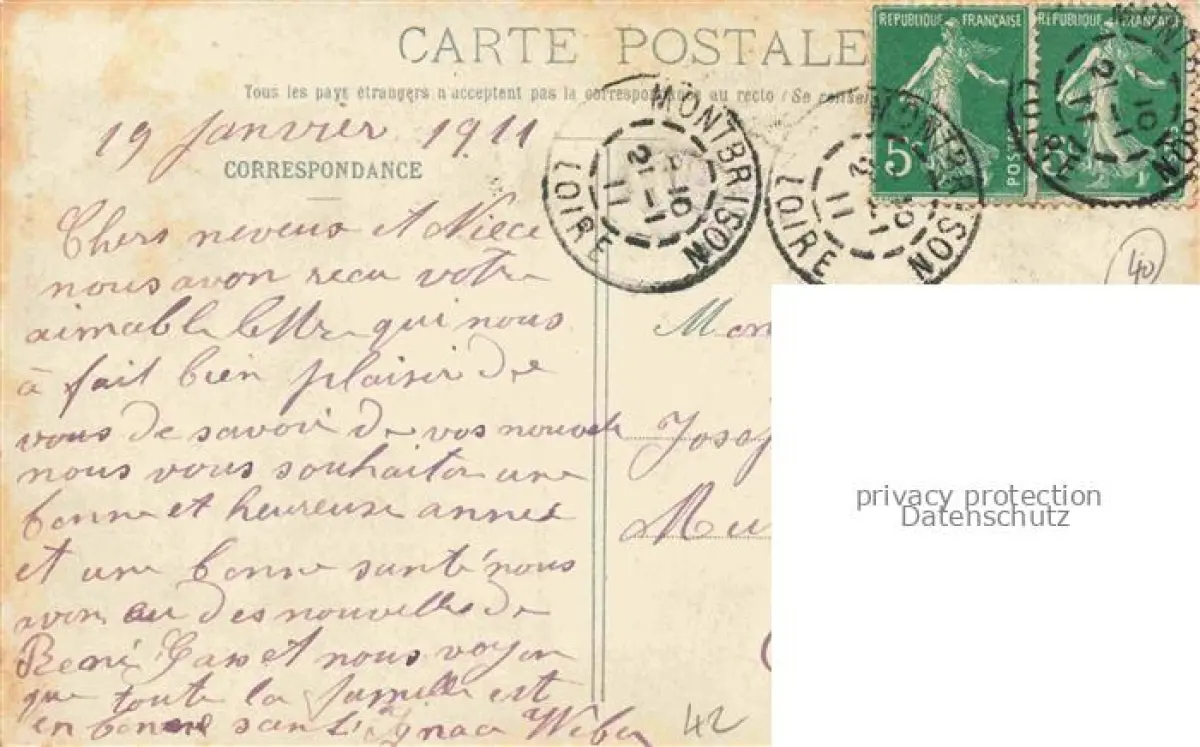 CARTE POSTALE
Tous les pays étrangers n'acceptent pas la correspondance au recto (Se renseig
19 Janvier 1911
CORRESPONDANCE
Chers neveus et Niece
nous avon recu votre
aimable lettre qui nous
à fait bien plaisir de
vous de savoir de vos nouvele
nous vous souhaiton une
bonne et heureuse année
et une bonne santé nous
avon eu des nouvelle de
René et nous voyon
que toute la famille est
en bonne sant Ignace Weber
REPUBLIQUE FRANÇAISE
5c
POS
REPUBLIQUE FRANÇAISE
5c
MONTBRISON
21 - 1
11
LOIRE
MONTBRISON
11
LOIRE
MONTBRISON
21 - 1
11
LOIRE
40
Mon
Josep
Mu
42
privacy protection
Datenschutz